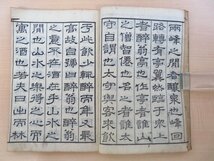 兩峰之間者釀泉也峰回
路轉有亭翼然臨于泉上
者醉翁亭也作亭者誰山
之僧智僊也名之者誰太
守自謂也太守與客來飲
于此飲少輒醉而年又最
高故自號曰醉翁也醉翁
之意不在酒在乎山水之
間也山水之樂得之心而
寓之酒也若夫日出而林